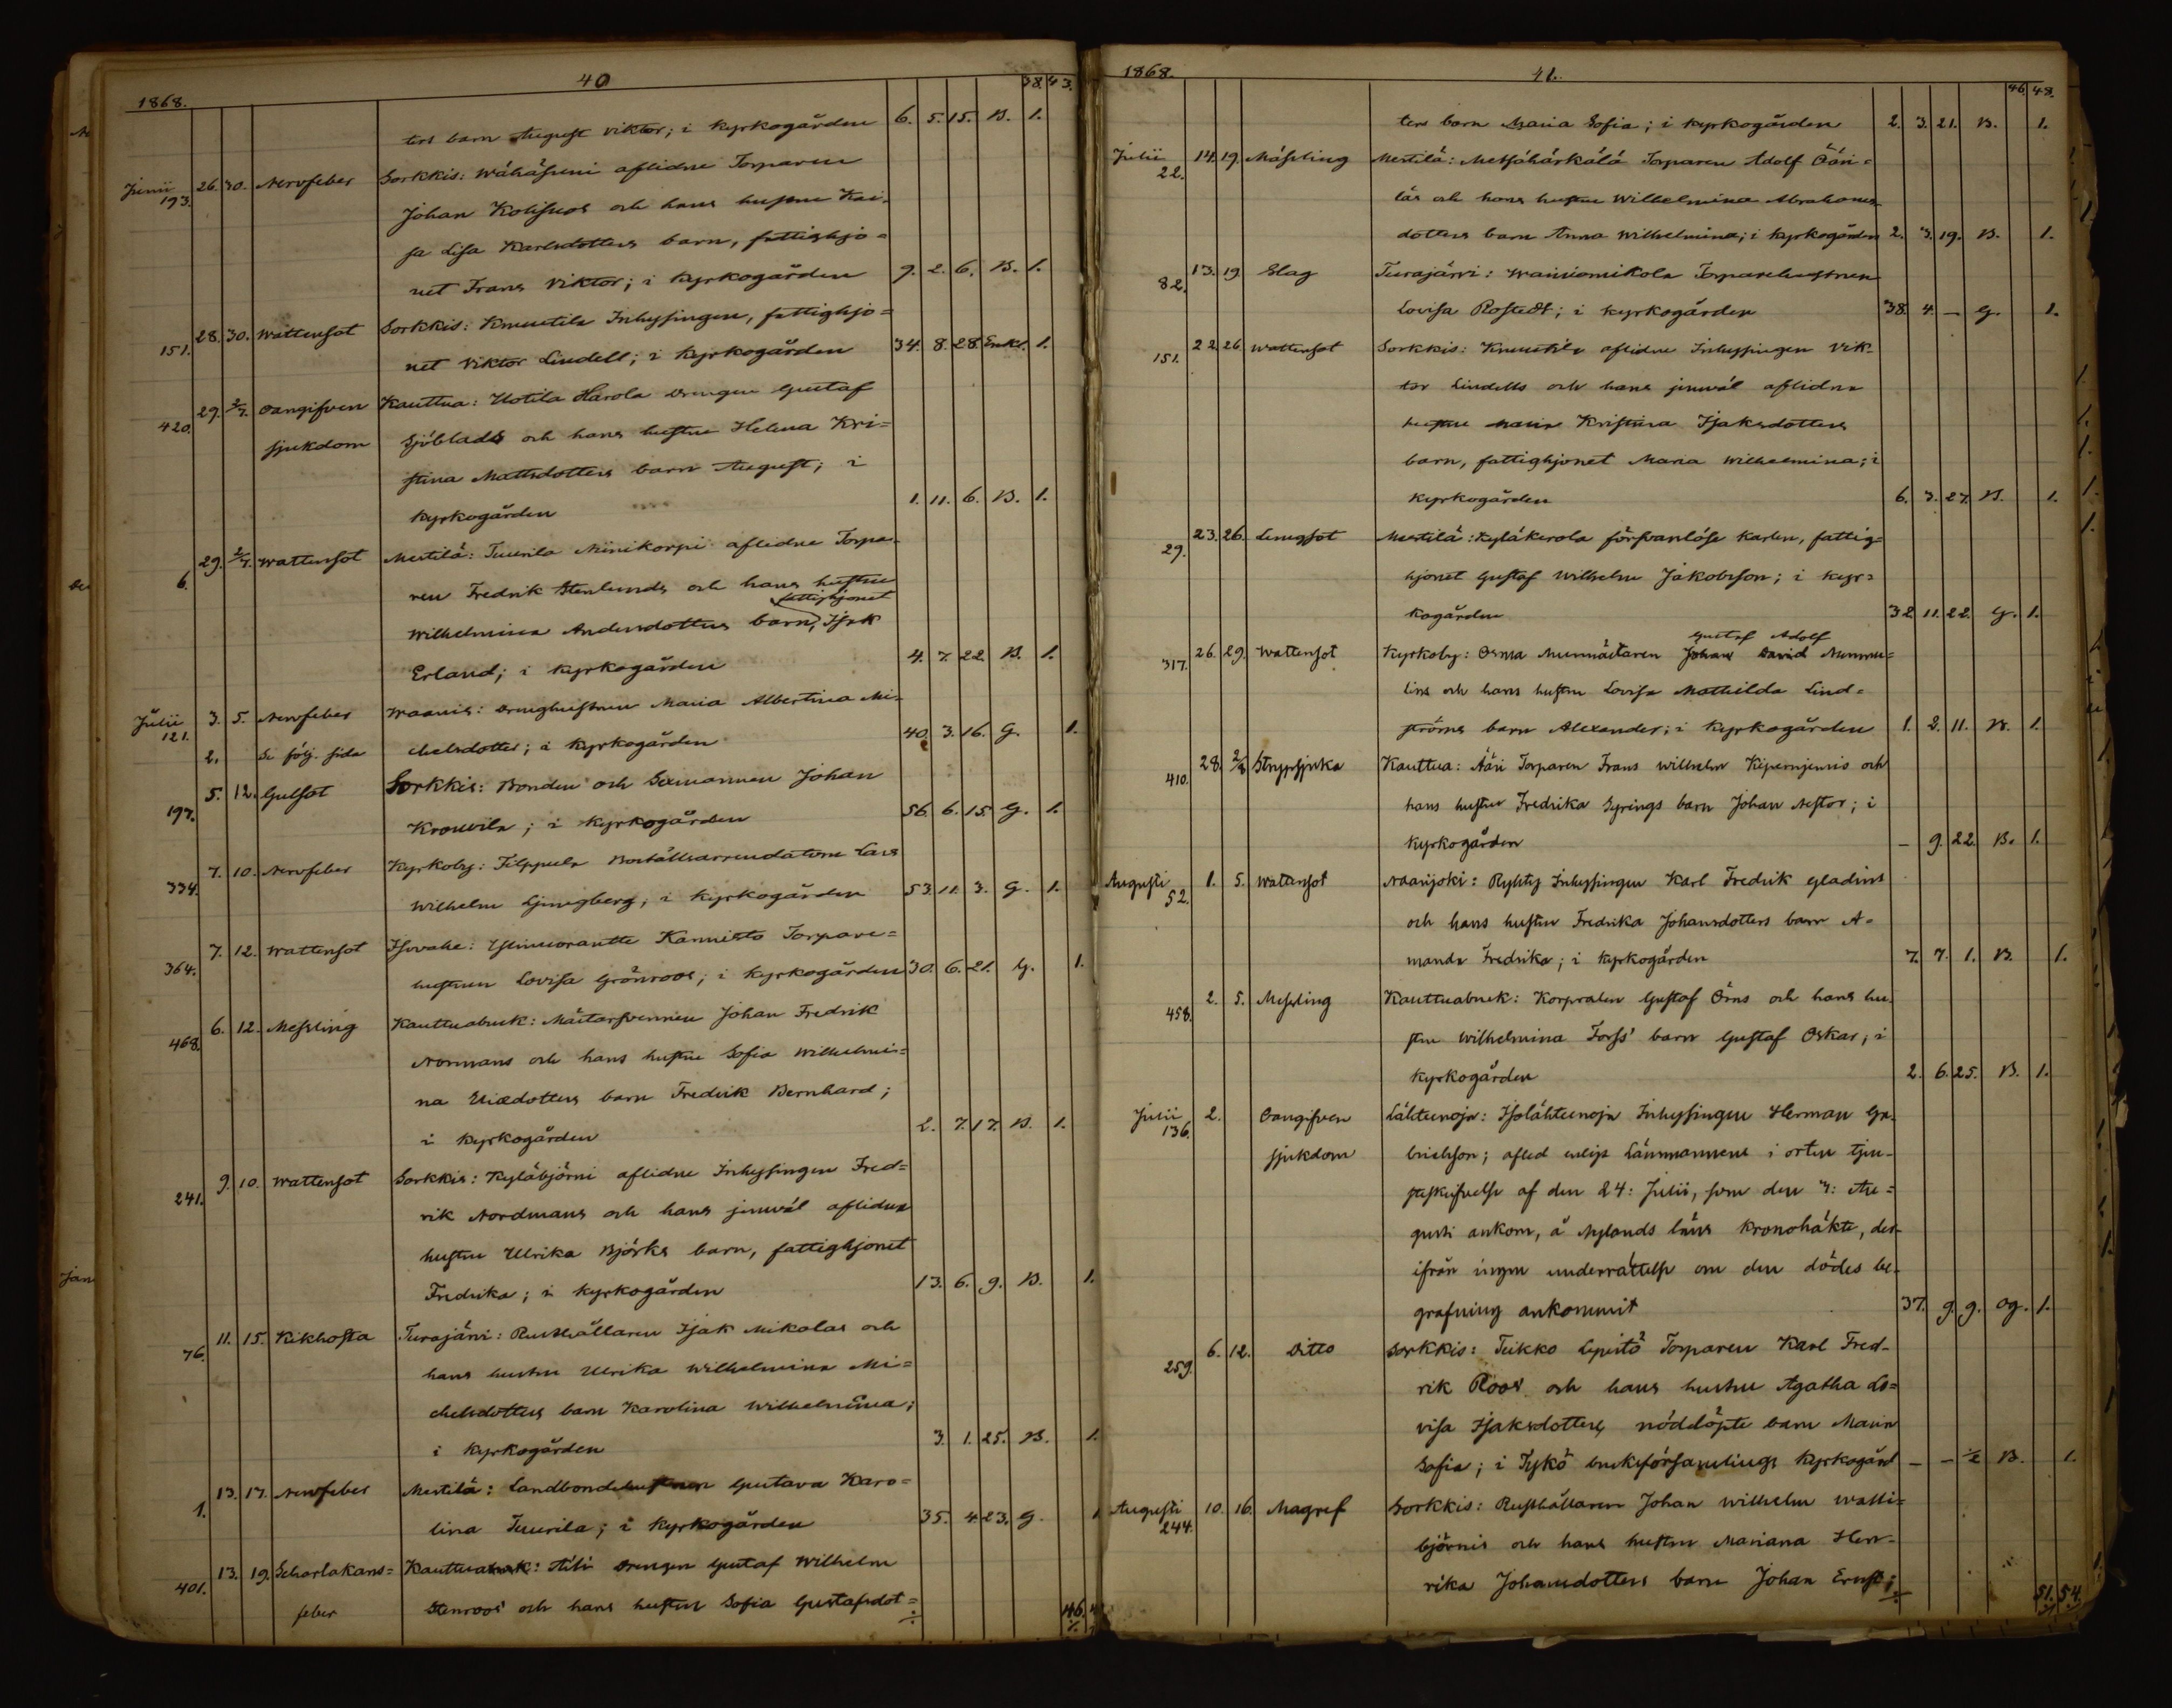 40
1868. 38. 43.
ters barn August Viktor; i kyrkogården 6. 5. 15. B. 1.
Junii 193. 26. 30. Nervfeber Sorkkis: Wähässeni aflidne Torparen
Johan Kolisuos och hans hustru Kai-
sa Lisa Karlsdotters barn, fattighjo-
net Frans Viktor; i kyrkogården 9. 2. 6. B. 1.
151. 28. 30. Wattensot Sorkkis: Knuutila Inhysingen, fattighjo-
net Viktor Lindell; i kyrkogården 34. 8. 28. Enkl. 1.
420. 29. 2/7. Oangifven Kauttua: Uotila Harola drengen Gustaf
sjukdom Sjöblads och hans hustru Helena Kri-
stina Mattsdotters barn August; i
kyrkogården 1. 11. 6. B. 1.
6. 29. 2/7. Wattensot Mestilä: Tuurila Minikorpii aflidne Torpa-
ren Fredrik Stenlunds och hans hustru
fattighjonet
Wilhelmina Andersdotters barn, Isak
Erland; i kyrkogården 4. 7. 22. B. 1.
Julii 121. 3. 5. Nervfeber Waanis: drenghustrun Maria Albertina Mi-
2. Se följ. sida chelsdotter; i kyrkogården 40. 3. 16. G. 1.
197. 5. 12. Gulsot Sorkkis: Bonden och Sexmannen Johan
Krouvila; i kyrkogården 56. 6. 15. G. 1.
334. 7. 10. Nervfeber Kyrkoby: Filppula Boställsarrendatorn Lars
Wilhelm Ljungberg; i kyrkogården 53. 11. 3. G. 1.
364. 7. 12. Wattensot Isovahe: Ylinenrantte Kannisto Torpare-
hustrun Lovisa Grönroos; i kyrkogården 30. 6. 21. G. 1.
468. 6. 12. Messling Kauttuabruk: Mästarsvennen Johan Fredrik
Normans och hans hustru Sofia Wilhelmi-
na Eliædotters barn Fredrik Bernhard;
i kyrkogården 2. 7. 17. B. 1.
241. 9. 10. Wattensot Sorkkis: Kyläbjörni aflidne Inhysingen Fred-
rik Nordmans och hans jemväl aflidna
hustru Ulrika Björks barn, fattighjonet
Fredrika; i kyrkogården 13. 6. 9. B. 1.
76. 11. 15. Kikhosta Turajärvi: Rusthållaren Isak Mikolas och
hans hustru Ulrika Wilhelmina Mi-
chelsdotters barn Karolina Wilhelmina;
i kyrkogården 3. 1. 25. B. 1.
1. 13. 17. Nervfeber Mestilä: Landbondehustrun Gustava Karo-
lina Tuurila; i kyrkogården 35. 4. 23. G. 1
401. 13. 19. Scharlakans- Kauttuabruk: drengen Gustaf Wilhelm
feber Stenroos' och hans hustru Sofia Gustafsdot- 46.
1868. 41. 46. 48.
ters barn Maria Sofia; i kyrkogården 2. 3. 21. B. 1.
Julii 22. 14. 19. Mässling Mestilä: Metsähärkälä Torparen Adolf Ääri-
läs och hans hustru Wilhelmina Abrahams-
dotters barn Anna Wilhelmina; i kyrkogården 2. 3. 19. B. 1.
82. 13. 19 Slag Turajärvi: Wainiomikola Torparehustrun
Lovisa Rostedt; i kyrkogården 38. 4. — G. 1.
151. 22. 26 Wattensot Sorkkis: Knuutila aflidne Inhysingen Vik-
tor Lindells och hans jemväl aflidna
hustru Maria Kristina Isaksdotters
barn, fattighjonet Maria Wilhelmina; i
kyrkogården 6. 3. 27. B. 1.
29. 23. 26. Lungsot Mestilä: Kyläkerola försvarslöse karlen, fattig-
hjonet Gustaf Wilhelm Jakobsson; i kyr-
kogården 32. 11. 22. G. 1.
Gustaf Adolf
317. 26. 29. Wattensot Kyrkoby: Osma Murmästaren Johan David Nummi-
lins och hans hustru Lovisa Mathilda Lind-
ströms barn Alexander; i kyrkogården 1. 2. 11. B. 1.
410. 28. 2/8 Strypsjuka Kauttua: Ääri Torparen Frans Wilhelm Kipernjemis och
hans hustru Fredrika Syrings barn Johan Nestor; i
kyrkogården — 9. 22. B. 1.
Augusti 52. 1. 5. Wattensot Naarijoki: Ryhty Inhysingen Karl Fredrik Gladins
och hans hustru Fredrika Johansdotters barn A-
manda Fredrika; i kyrkogården 7. 7. 1. B. 1.
458. 2. 5. Messling Kauttuabruk: Korpralen Gustaf Örns och hans hu-
stru Wilhelmina Forss' barn Gustaf Oskar; i
kyrkogården 2. 6. 25. B. 1.
Julii 136. 2. Oangifven Lähteenoja: Isolähteenoja Inhysingen Herman Ga-
sjukdom brielsson; afled enligt Länsmannens i orten tjen-
steskrifvelse af den 24: Julii, som den 3: Au-
gusti ankom, å Nylands läns kronohäkte, der-
ifrån ingen underrättelse om den dödes be-
grafning ankommit 37. 9. 9. Og. 1.
259. 6. 12. Ditto Sorkkis: Teikko Lepistö Torparen Karl Fred-
rik Roos' och hans hustru Agatha Lo-
visa Isaksdotters nöddöpte barn Maria
Sofia; i Tykö bruksförsamlings kyrkogård — — ½ B. 1.
Augusti 244. 10. 16. Magref Sorkkis: Rusthållaren Johan Wilhelm Walli-
björnis och hans hustru Mariana Hen-
rika Johansdotters barn Johan Ernst;
51. 54.